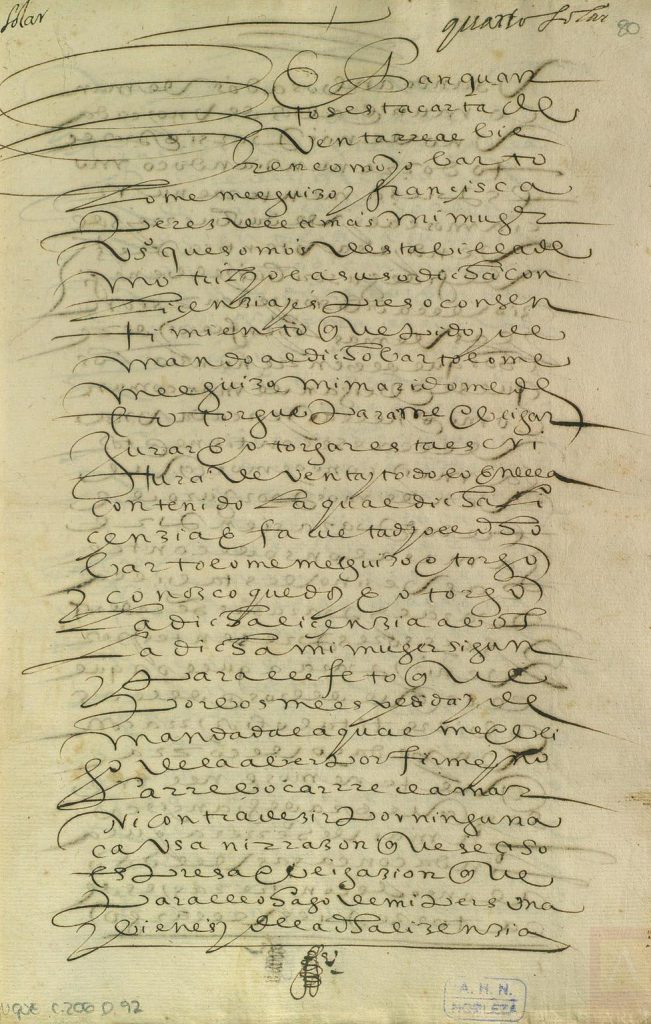 Solar
quarto Solar
80
Sean quan
tos esta carta de
Venta rreal vie
ren como yo barto
lome melguizo y francisca
Perez de lamas mi muger
Vs. que somos desta billa de
motril yo la susodicha con
licenzia y espreso consen
timiento que pido y de
mando al dicho bartolome
melguizo mi marido me de
E otorgue para me obligar
Jurar E otorgar esta escri
tura de venta y todo lo en ella
contenido La qual dicha li
cenzia E facultad yo el dho
bartolome melguizo otorgo
y conozco que doy E otorgo
La dicha licenzia a bos
La dicha mi muger sigun
Para el efeto que
Por bos me es pedida y de
mandada la qual me obli
go de la aber por firme y no
La rrebocar rreclamar
ni contradezir por ninguna
causa ni rrazon que sea so
espresa obligazion que
Para ello hago de mi persona
y bienes de la dha lizenzia
UQUE C.206 D.92
A. H. N.
NOBLEZA